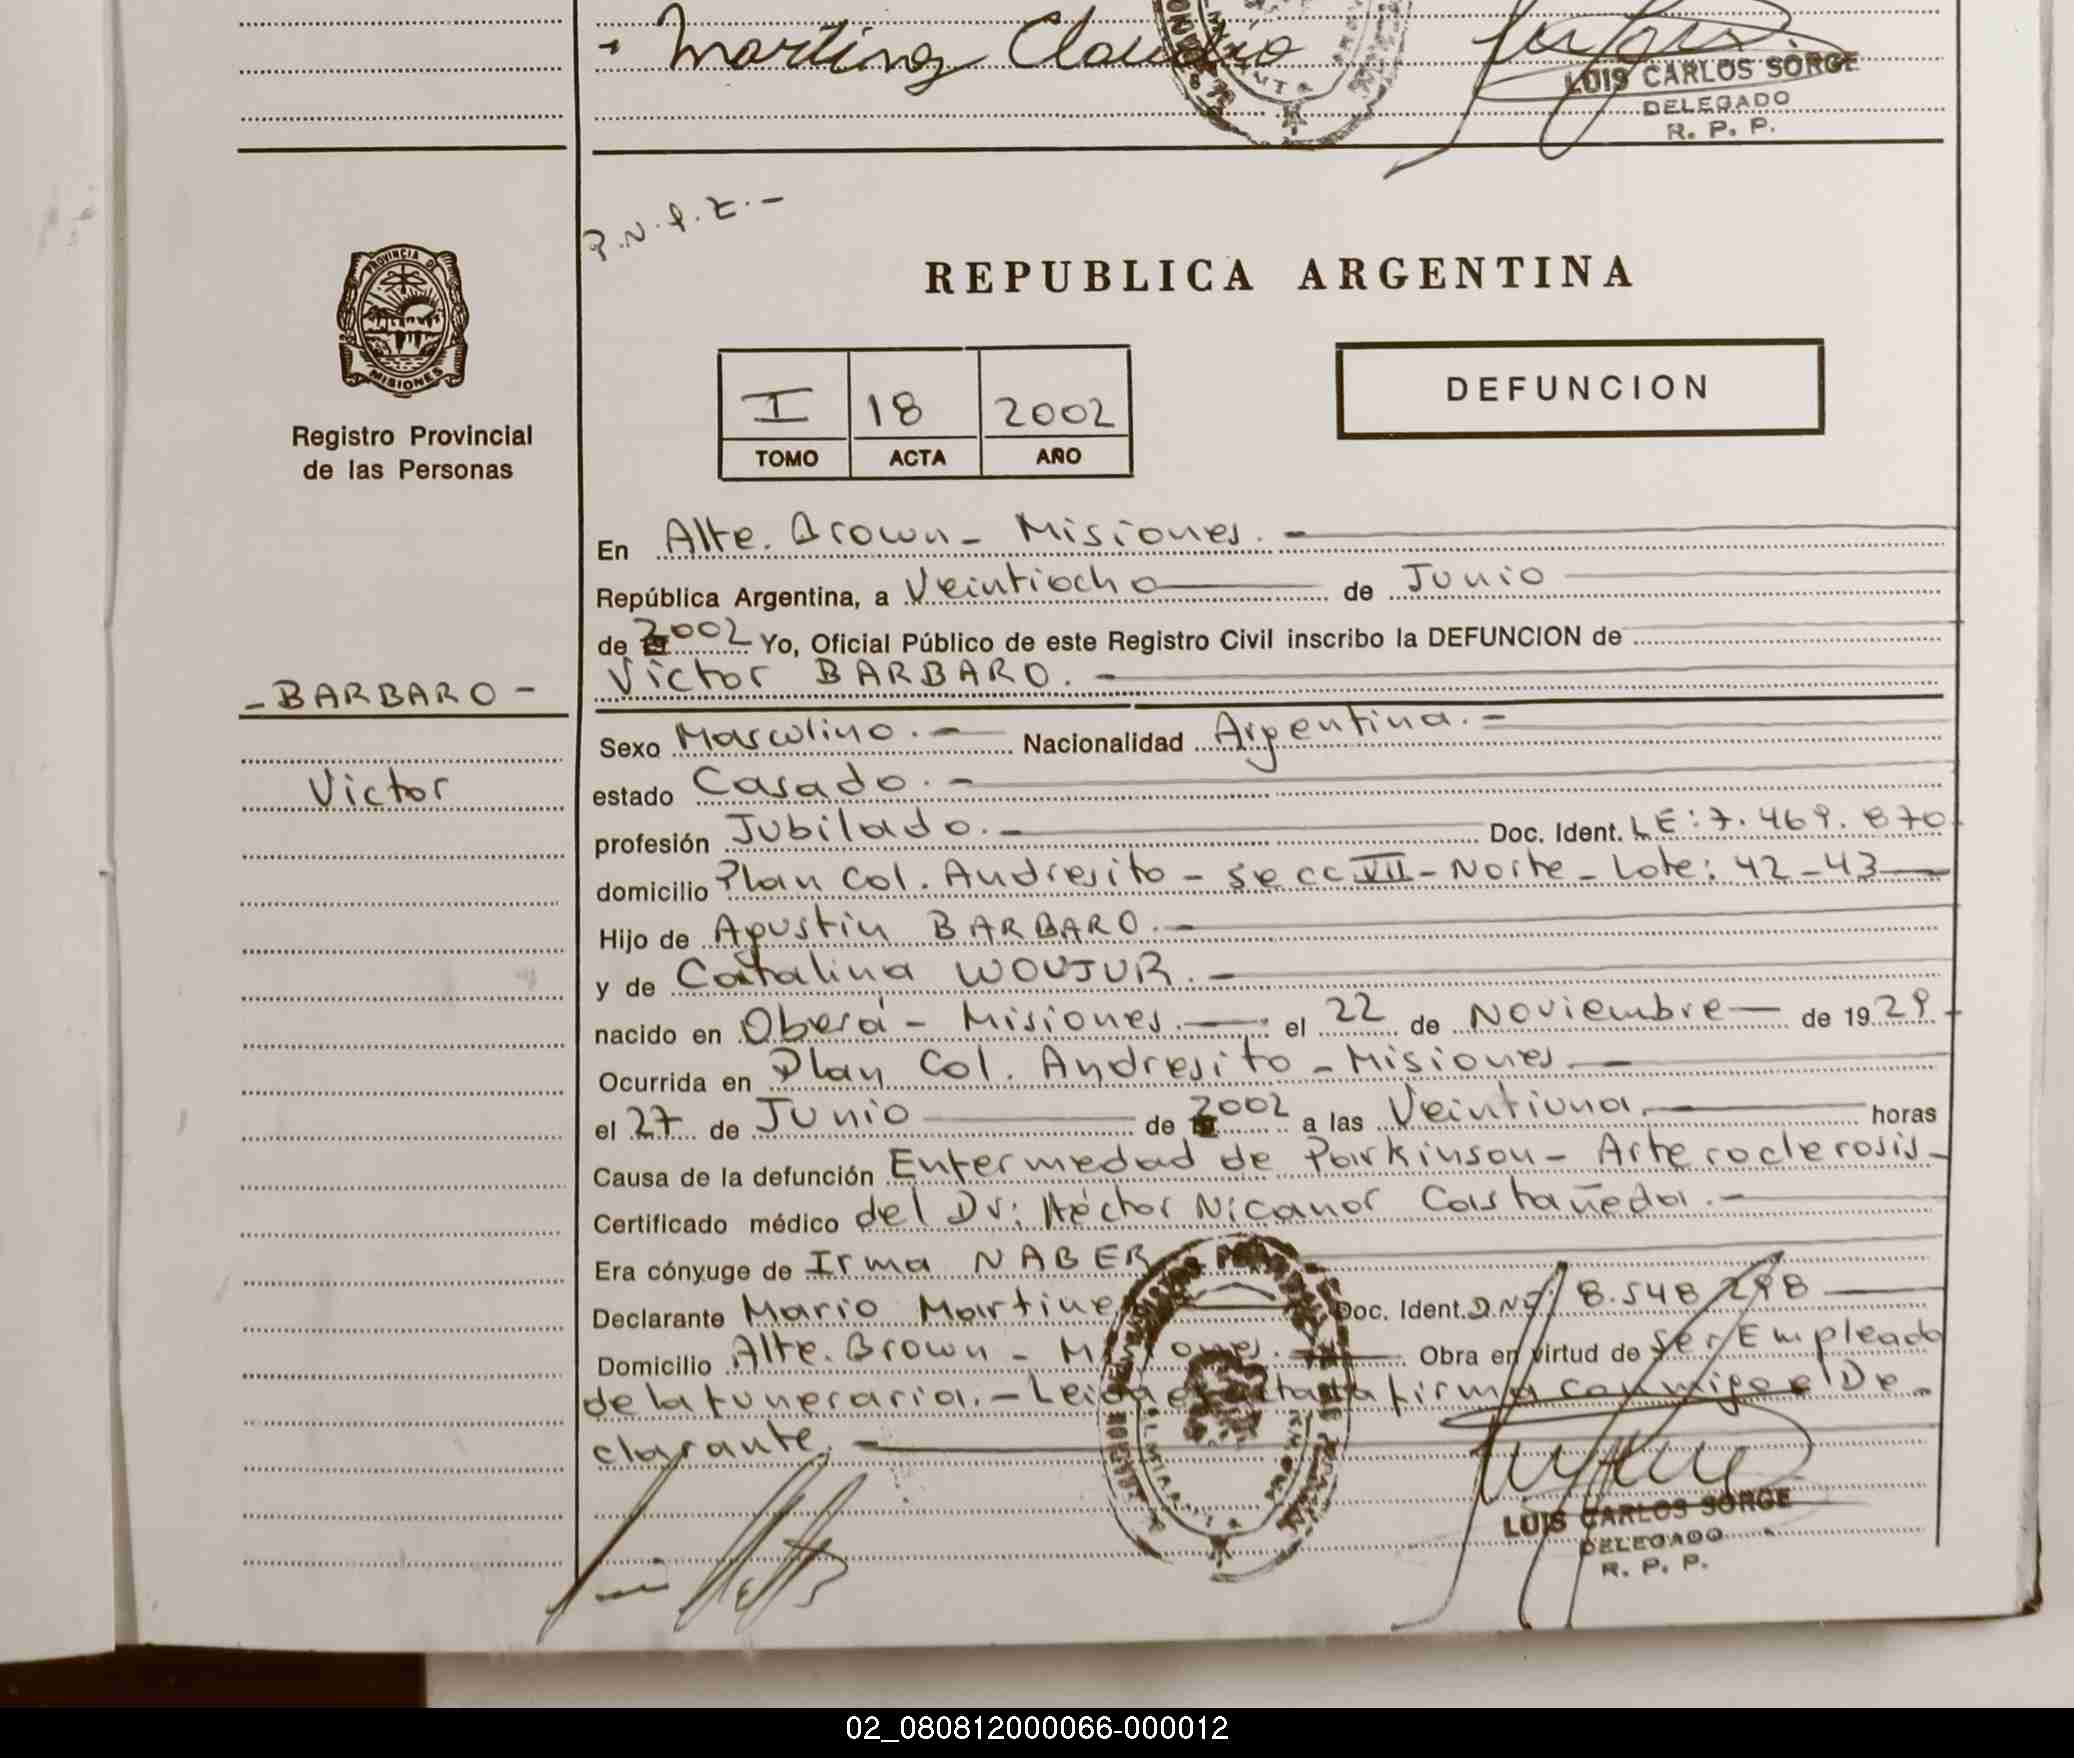 Martinez Claudio
LUIS CARLOS SORGE
DELEGADO
R. P. P.
PROVINCIA DE
MISIONES
Registro Provincial
de las Personas
REPUBLICA ARGENTINA
I 18 2002
TOMO ACTA AÑO
DEFUNCION
En Alte. Brown - Misiones.-
República Argentina, a Veintiocho de Junio
de 2002 Yo, Oficial Público de este Registro Civil inscribo la DEFUNCION de
Victor BARBARO.-
- BARBARO -
Victor
Sexo Masculino.- Nacionalidad Argentina.-
estado Casado.-
profesión Jubilado.- Doc. Ident. LE: 7.469.870
domicilio Plan Col. Andresito - secc VII - Norte - Lote: 42-43
Hijo de Agustin BARBARO.-
y de Catalina WOUJUR.-
nacido en Oberá - Misiones.- el 22 de Noviembre de 1929
Ocurrida en Plan Col. Andresito - Misiones
el 27 de Junio de 2002 a las Veintiuna.- horas
Causa de la defunción Enfermedad de Parkinson - Arteroclerosis-
Certificado médico del Dr: Héctor Nicanor Castañeda.-
Era cónyuge de Irma NABER
Declarante Mario Martinez Doc. Ident. DNI: 8.548.298
Domicilio Alte. Brown - Misiones. Obra en virtud de ser Empleado
de la funeraria.- Leida el acta la firma conmigo el De-
clarante.-
LUIS CARLOS SORGE
DELEGADO
R. P. P.
02_080812000066-000012